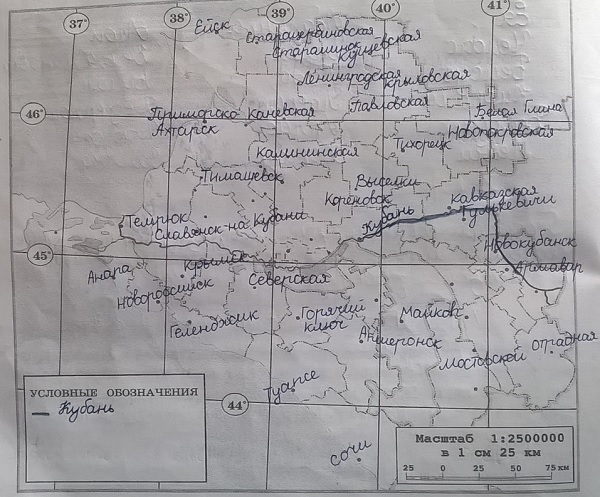 37°
38°
39°
40°
41°
Ейск
Старощербиновская
Староминск
Кущевская
Ленинградская
Крыловская
46°
Приморско
Ахтарск
Каневская
Павловская
Белая Глина
Новопокровская
Калининская
Тихорецк
Тимашевск
Выселки
Кореновск
Кавказская
Гулькевичи
Темрюк
Славянск-на Кубани
Кубань
Новокубанск
45°
Анапа
Крымск
Северская
Армавир
Новороссийск
Геленджик
Горячий
ключ
Майкоп
Апшеронск
Отрадная
Мостовской
Туапсе
44°
УСЛОВНЫЕ ОБОЗНАЧЕНИЯ
Кубань
Сочи
Масштаб 1:2500000
в 1 см 25 км
25 0 25 50 75 км